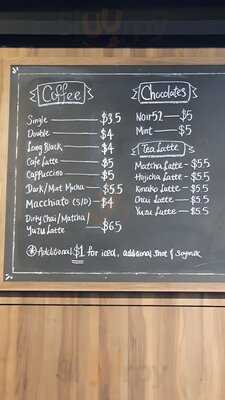 Coffee
Single $3.5
Double $4
Long Black $4
Cafe Latte $5
Cappuccino $5
Dark/Mint Mocha $5.5
Macchiato (S/D) $4
Dirty Chai/Matcha/
Yuzu Latte $6.5
Chocolates
Noir52 $5
Mint $5
Tea Latte
Matcha Latte $5.5
Hojicha Latte $5.5
Kinako Latte $5.5
Chai Latte $5.5
Yuzu Latte $5.5
Additional $1 for iced, additional shot & soymilk